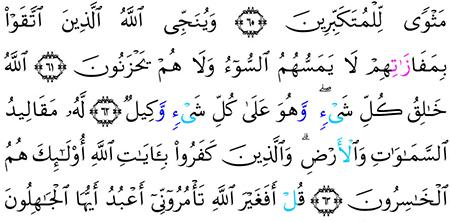 مَثْوًى لِّلْمُتَكَبِّرِينَ ٦٠ وَيُنَجِّى ٱللَّهُ ٱلَّذِينَ ٱتَّقَوْا۟
بِمَفَازَٰتِهِمْ لَا يَمَسُّهُمُ ٱلسُّوٓءُ وَلَا هُمْ يَحْزَنُونَ ٦١ ٱللَّهُ
خَٰلِقُ كُلِّ شَىْءٍۢ ۖ وَهُوَ عَلَىٰ كُلِّ شَىْءٍۢ وَكِيلٌ ٦٢ لَّهُۥ مَقَالِيدُ
ٱلسَّمَٰوَٰتِ وَٱلْأَرْضِ ۗ وَٱلَّذِينَ كَفَرُوا۟ بِـَٔايَٰتِ ٱللَّهِ أُو۟لَٰٓئِكَ هُمُ
ٱلْخَٰسِرُونَ ٦٣ قُلْ أَفَغَيْرَ ٱللَّهِ تَأْمُرُوٓنِّىٓ أَعْبُدُ أَيُّهَا ٱلْجَٰهِلُونَ